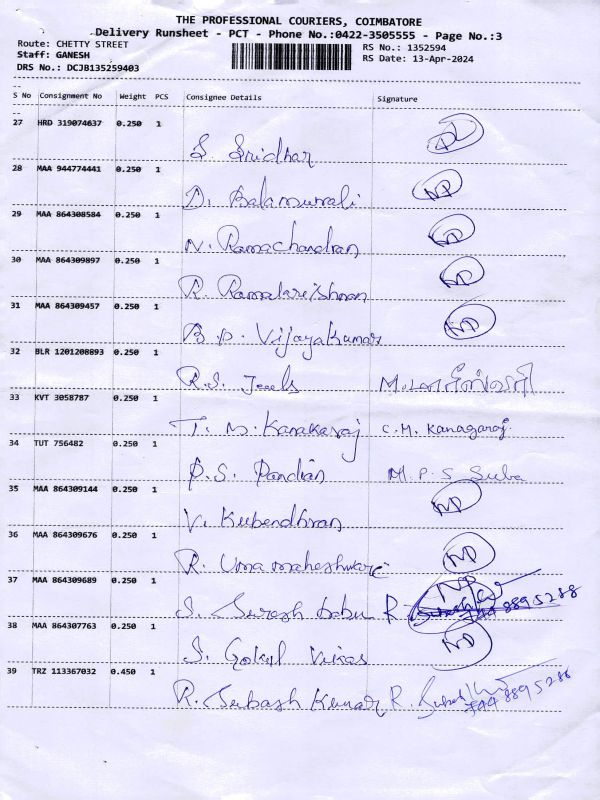 THE PROFESSIONAL COURIERS, COIMBATORE
Delivery Runsheet - PCT - Phone No.:0422-3505555 - Page No.:3
Route: CHETTY STREET RS No.: 1352594
Staff: GANESH RS Date: 13-Apr-2024
DRS No.: DCJB135259403
S No Consignment No Weight PCS Consignee Details Signature
27 HRD 319074637 0.250 1
S. Sridhar
28 MAA 944774441 0.250 1 ND
D. Balamurali
29 MAA 864308584 0.250 1 ND
N. Ramachandran
30 MAA 864309897 0.250 1 ND
R. Ramakrishnan
31 MAA 864309457 0.250 1 ND
B.P. Vijayakumar
32 BLR 1201208893 0.250 1
R.S. Jewels
33 KVT 3058787 0.250 1
T. M. Kanakaraj C.M. Kanagaraj.
34 TUT 756482 0.250 1
P.S. Pandian M.P.S Suba
35 MAA 864309144 0.250 1 ND
V. Kubendhran
36 MAA 864309676 0.250 1 ND
R. Uma maheshwari
37 MAA 864309689 0.250 1 ND
S. Suresh babu R.
38 MAA 864307763 0.250 1 ND
S. Gokul Vikas
39 TRZ 113367032 0.450 1
R. Subash Kumar R.